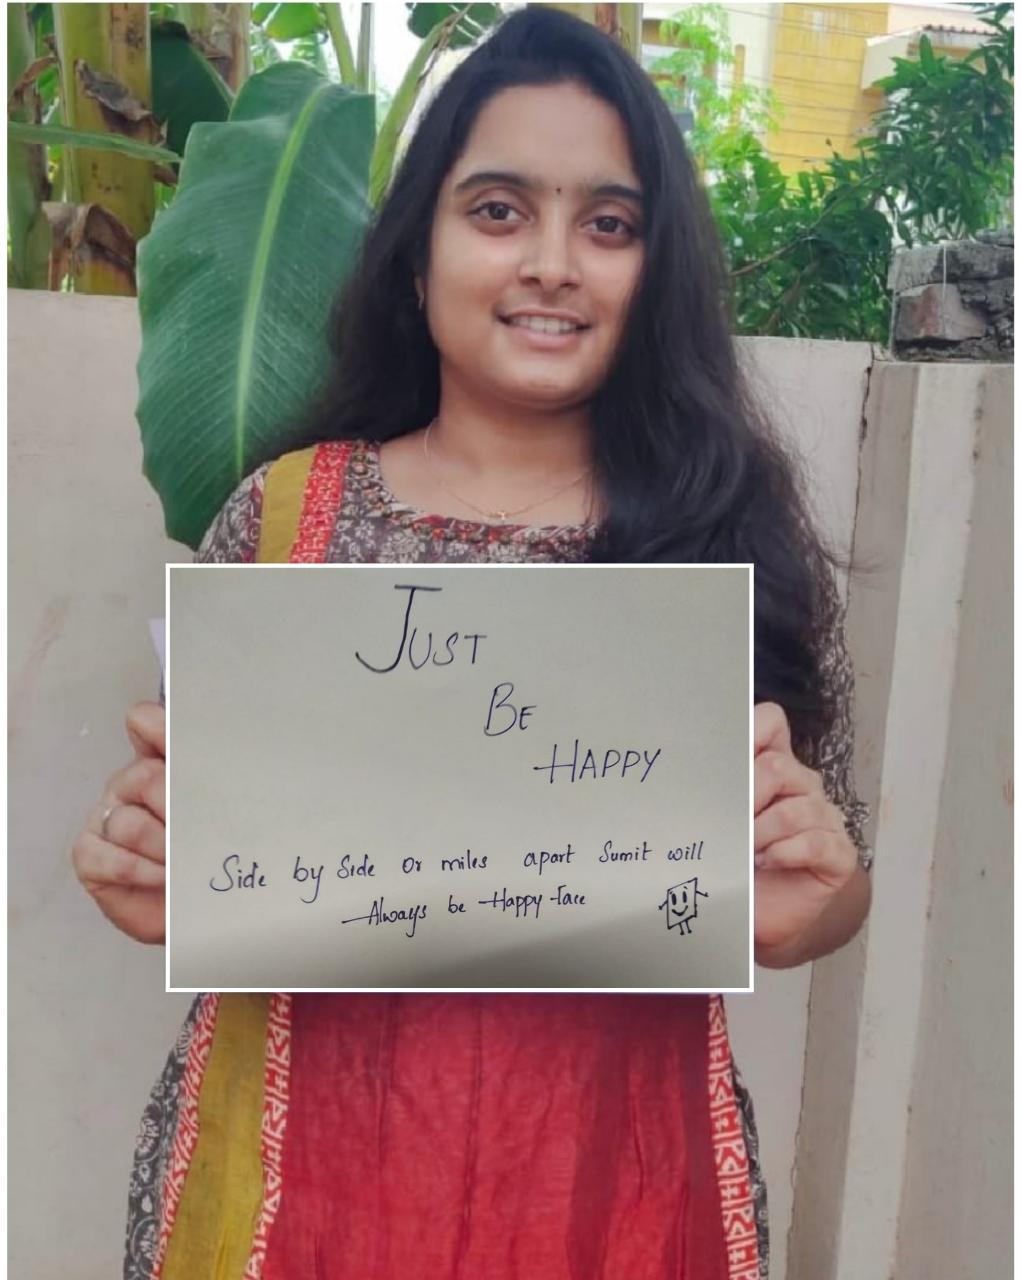 JUST
BE
HAPPY
Side by side or miles apart Sumit will
Always be Happy face